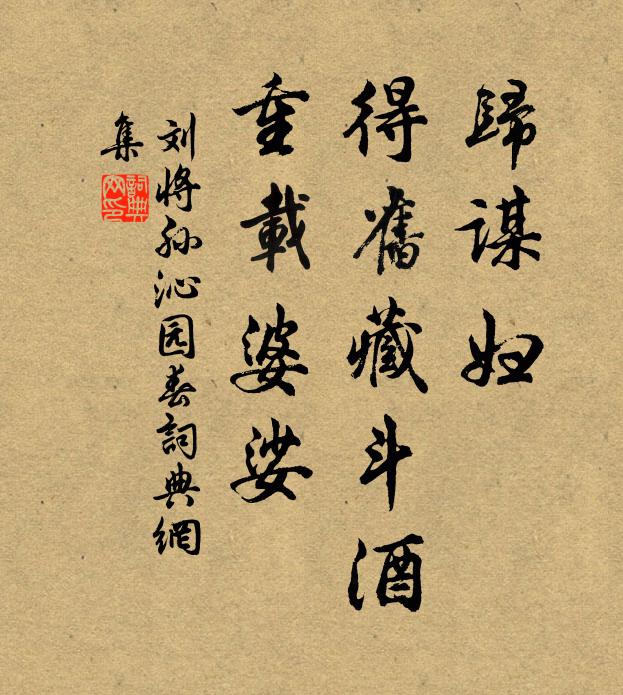 歸謀妇
得舊藏斗酒
重載婆娑
刘将孙沁园春詞典網
集
詞典网印